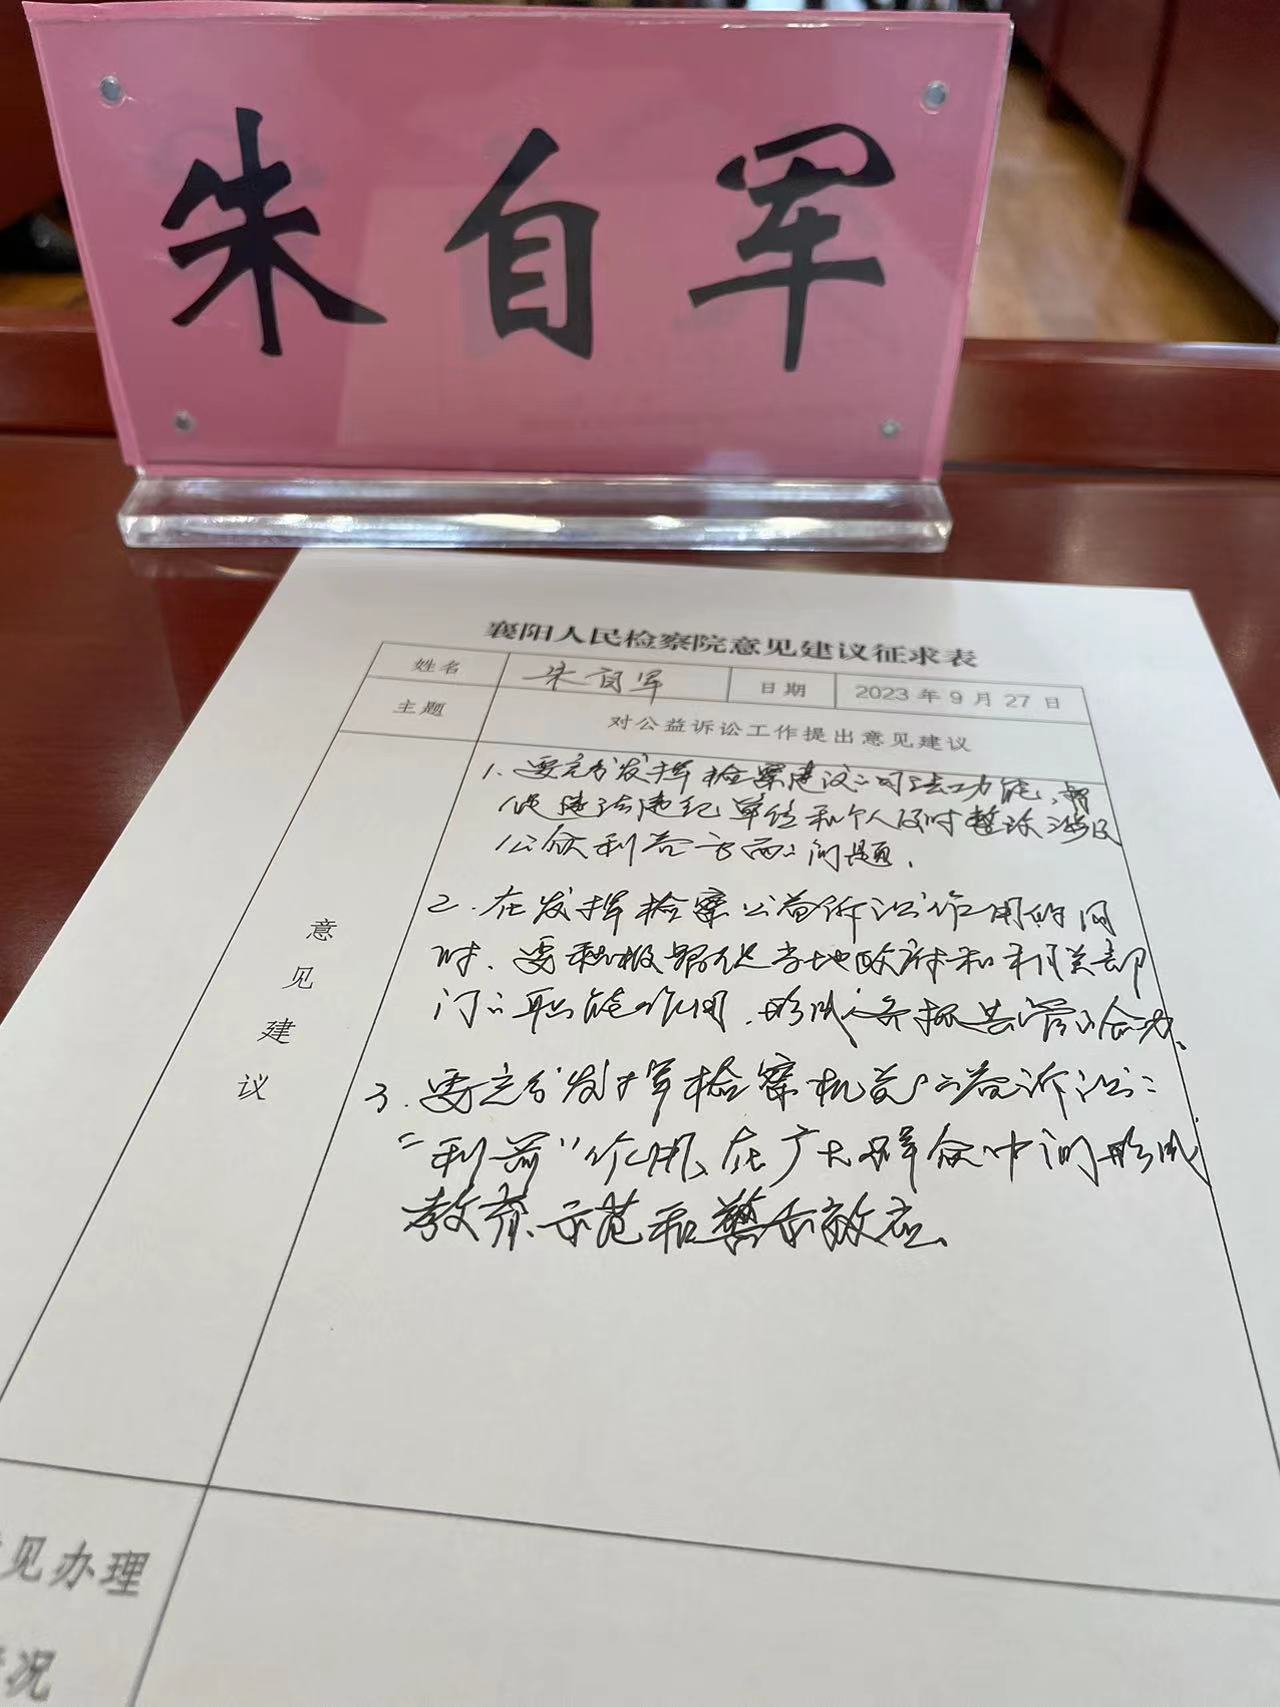 朱自军
襄阳人民检察院意见建议征求表
姓名 朱自军 日期 2023年9月27日
主题 对公益诉讼工作提出意见建议
意见建议
1.要充分发挥检察建议的司法功能,督
促违法违纪单位和个人及时整改涉及
公众利益方面的问题.
2.在发挥检察公益诉讼作用的同
时、要积极督促当地政府和相关部
门的职能作用,形成齐抓共管的合力、
3.要充分发挥检察机关公益诉讼的
“利剑”作用、在广大群众中间形成
教育、示范和警示效应、
见办理
况